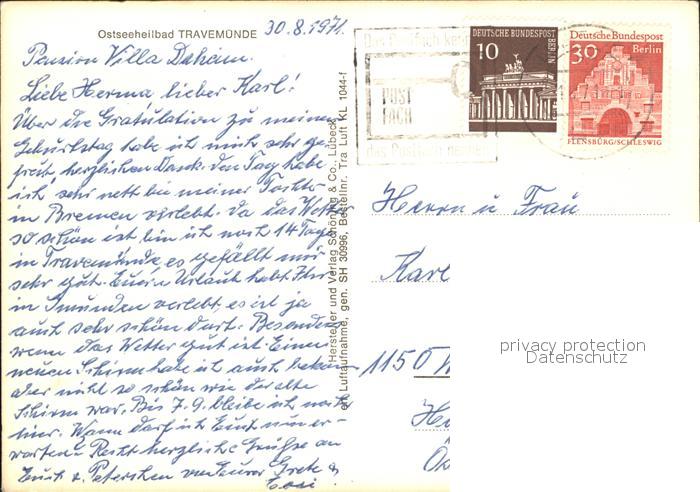 Ostseeheilbad TRAVEMÜNDE 30.8.1971.
Pension Villa Daheim.
Liebe Herma lieber Karl!
Über die Gratulation zu meinem
Geburtstag habe ich mich sehr ge-
freut, herzlichen Dank. den Tag habe
ich sehr nett bei meiner Tochter
in Bremen verlebt. Da das Wetter
so schön ist bin ich noch 14 Tage
in Travemünde, es gefällt mir
sehr gut. Euern Urlaub habt Ihr
in Gmunden verlebt, es ist ja
auch sehr schön dort. Besonders
wenn das Wetter gut ist. Einen
neuen Schirm habe ich auch bekom-
aber nicht so schön wie der alte
Schirm war. Bis 7.9. bleibe ich noch
hier. Wann darf ich Euch nun er-
warten. Recht herzliche Grüße an
Euch u. Peterchen von Eurer Grete &
Hersteller und Verlag Schöning & Co., Lübeck
Luftaufnahme, gen. SH 30996, Bestellnr. Tra Luft KL 1044-f
Das Postfach
POST
FACH
das Postfach
DEUTSCHE BUNDESPOST
BERLIN
10
Deutsche Bundespost
30 Berlin
FLENSBURG/SCHLESWIG
Herrn u Frau
Karl
1150 W
privacy protection
Datenschutz